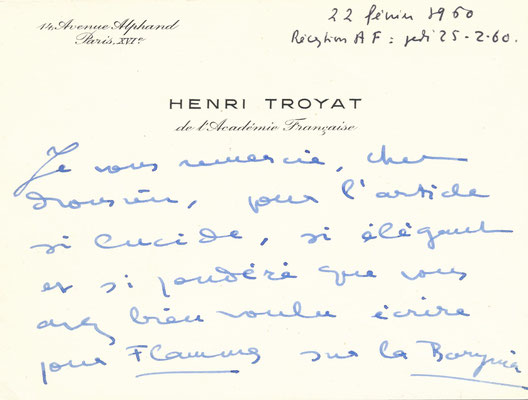 14, Avenue Alphand
Paris, XVIe
22 février 1960
Réception AF : jeudi 25-2-60.
HENRI TROYAT
de l'Académie Française
Je vous remercie, cher
Monsieur, pour l'article
si lucide, si élégant
et si pondéré que vous
avez bien voulu écrire
pour Flammes sur la Barynia